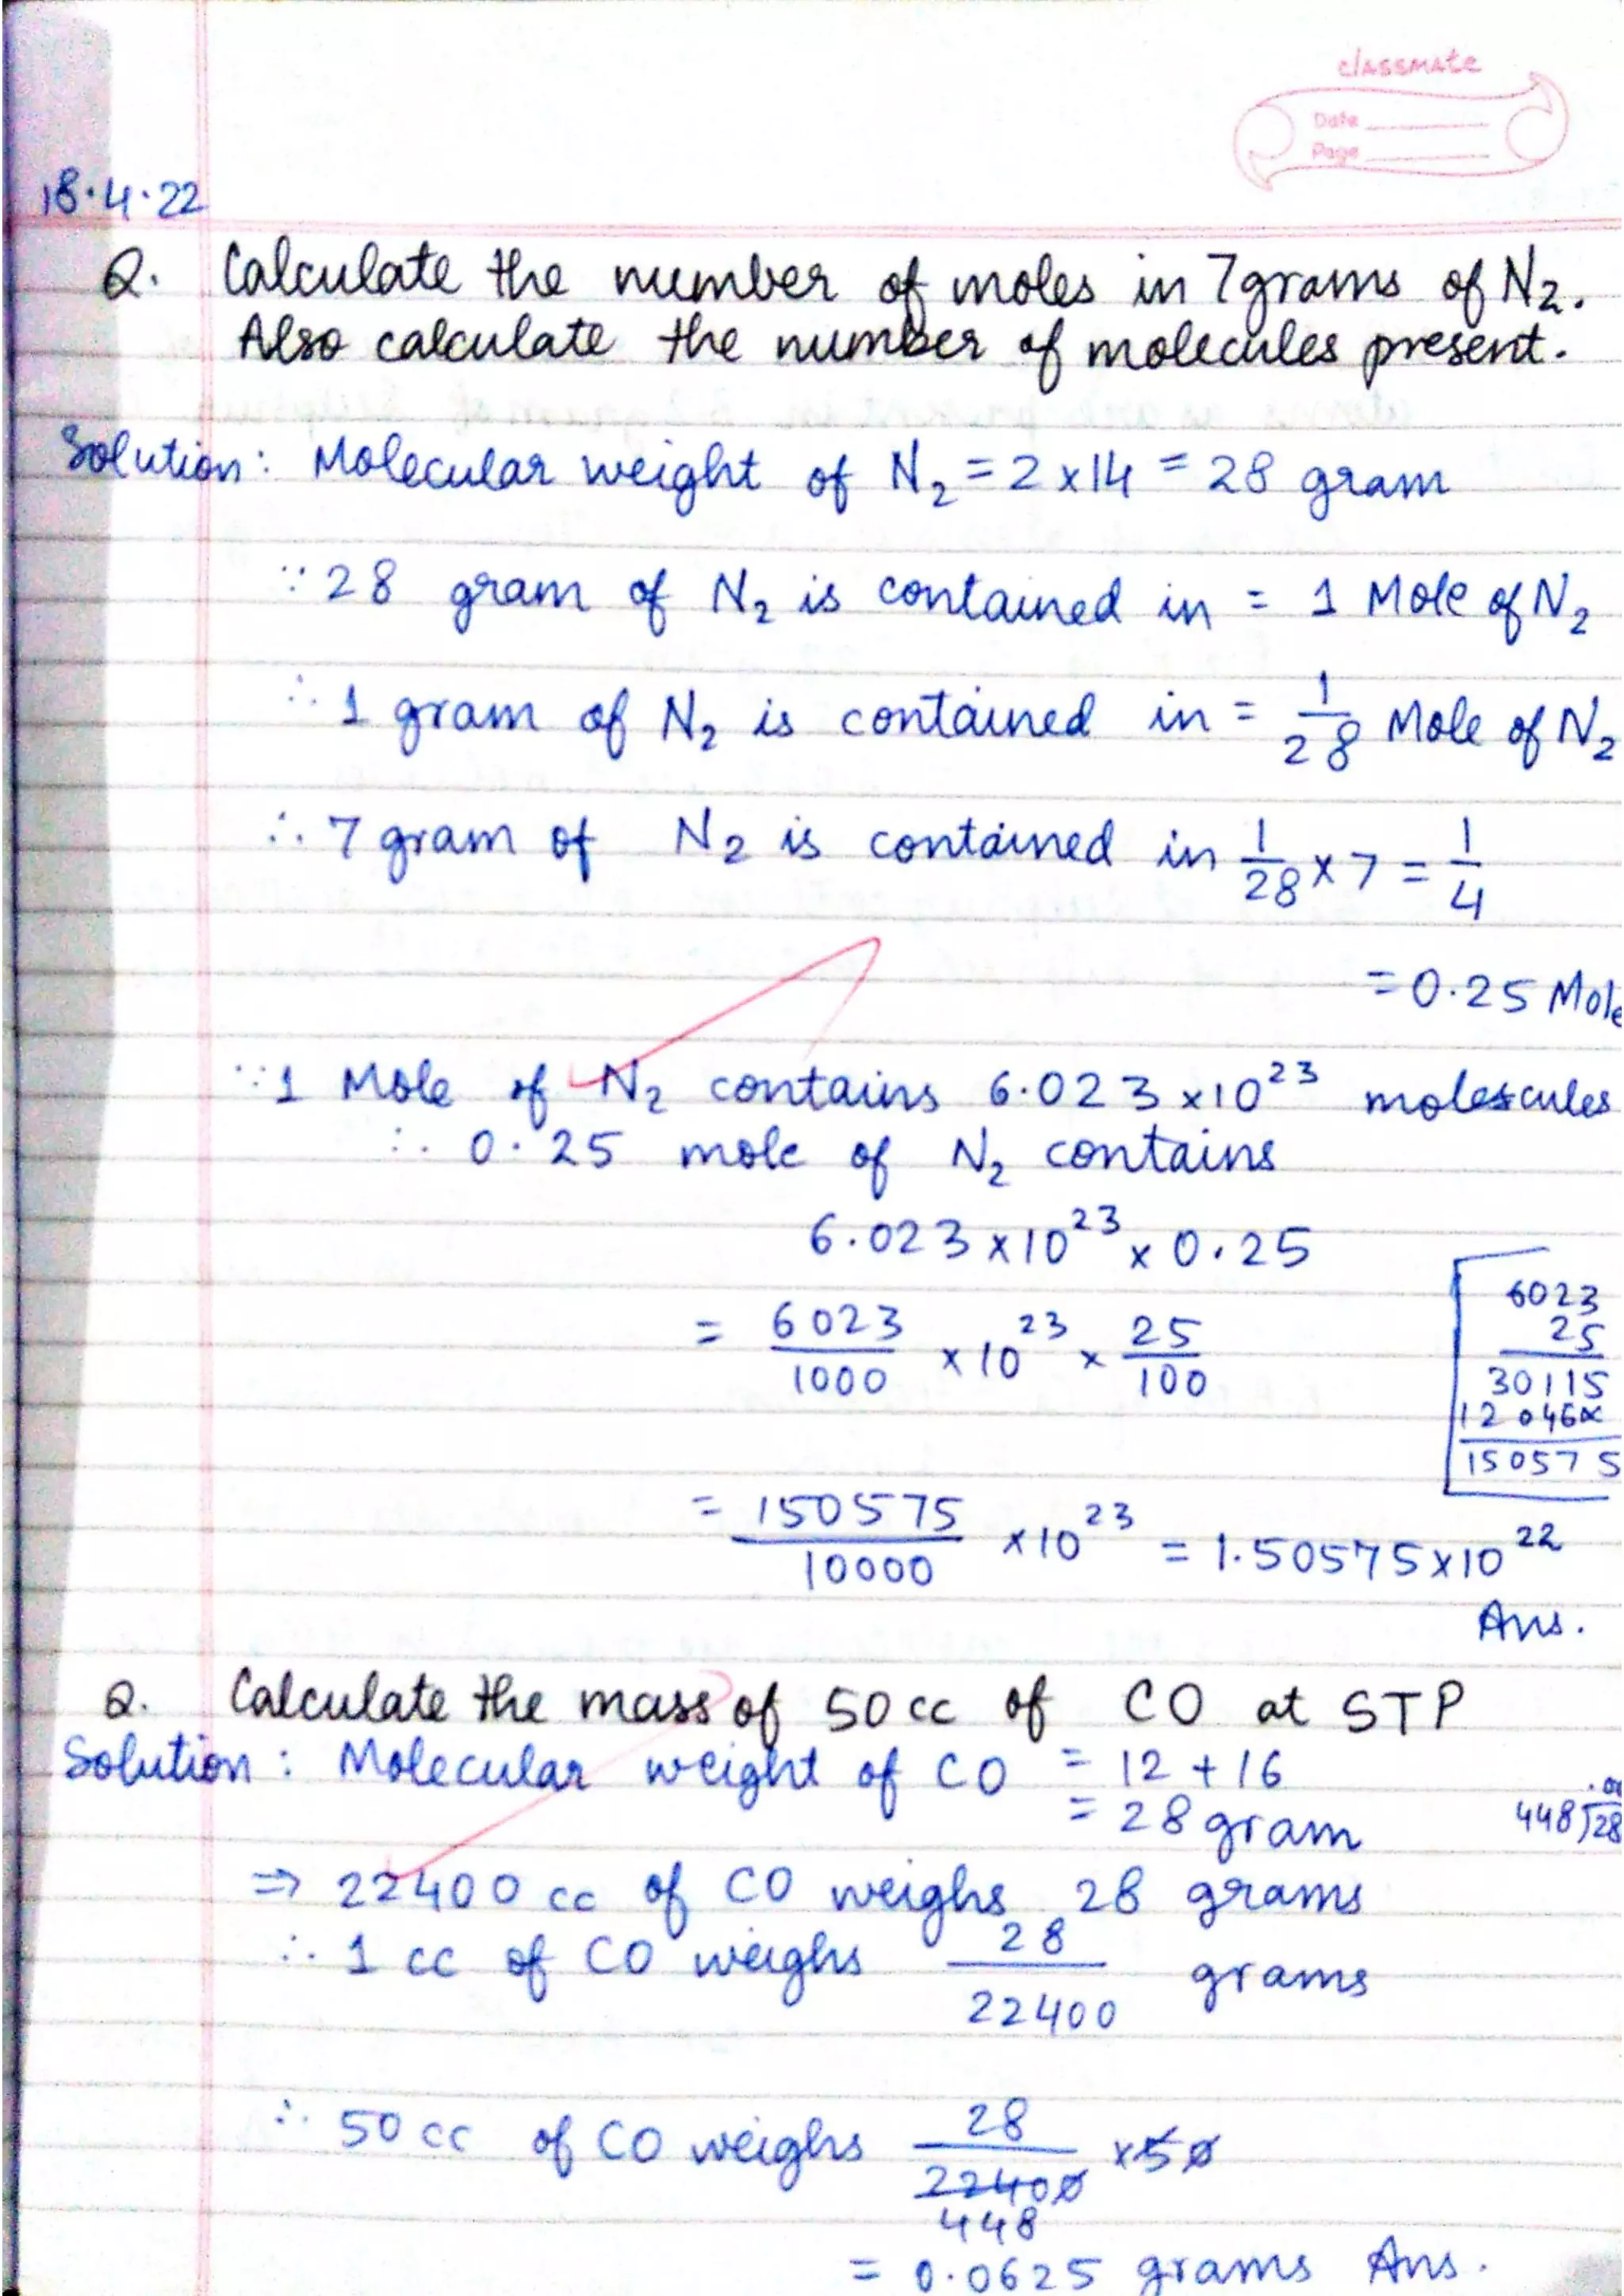 classmate
Date
Page
18.4.22
Q. Calculate the number of moles in 7grams of N₂.
Also calculate the number of molecules present.
Solution: Molecular weight of N₂ = 2 x 14 = 28 gram
∵ 28 gram of N₂ is contained in = 1 Mole of N₂
∴ 1 gram of N₂ is contained in = 1/28 Mole of N₂
∴ 7 gram of N₂ is contained in 1/28 x 7 = 1/4
= 0.25 Mole
∵ 1 Mole of N₂ contains 6.023 x 10²³ molecules
∴ 0.25 mole of N₂ contains
6.023 x 10²³ x 0.25
= 6023/1000 x 10²³ x 25/100
6023
25
30115
12046x
150575
= 150575/10000 x 10²³ = 1.50575 x 10²²
Ans.
Q. Calculate the mass of 50 cc of CO at STP
Solution: Molecular weight of CO = 12 + 16
= 28 gram
448)28
⇒ 22400 cc of CO weighs 28 grams
∴ 1 cc of CO weighs 28/22400 grams
∴ 50 cc of CO weighs 28/22400 x 50
448
= 0.0625 grams Ans.